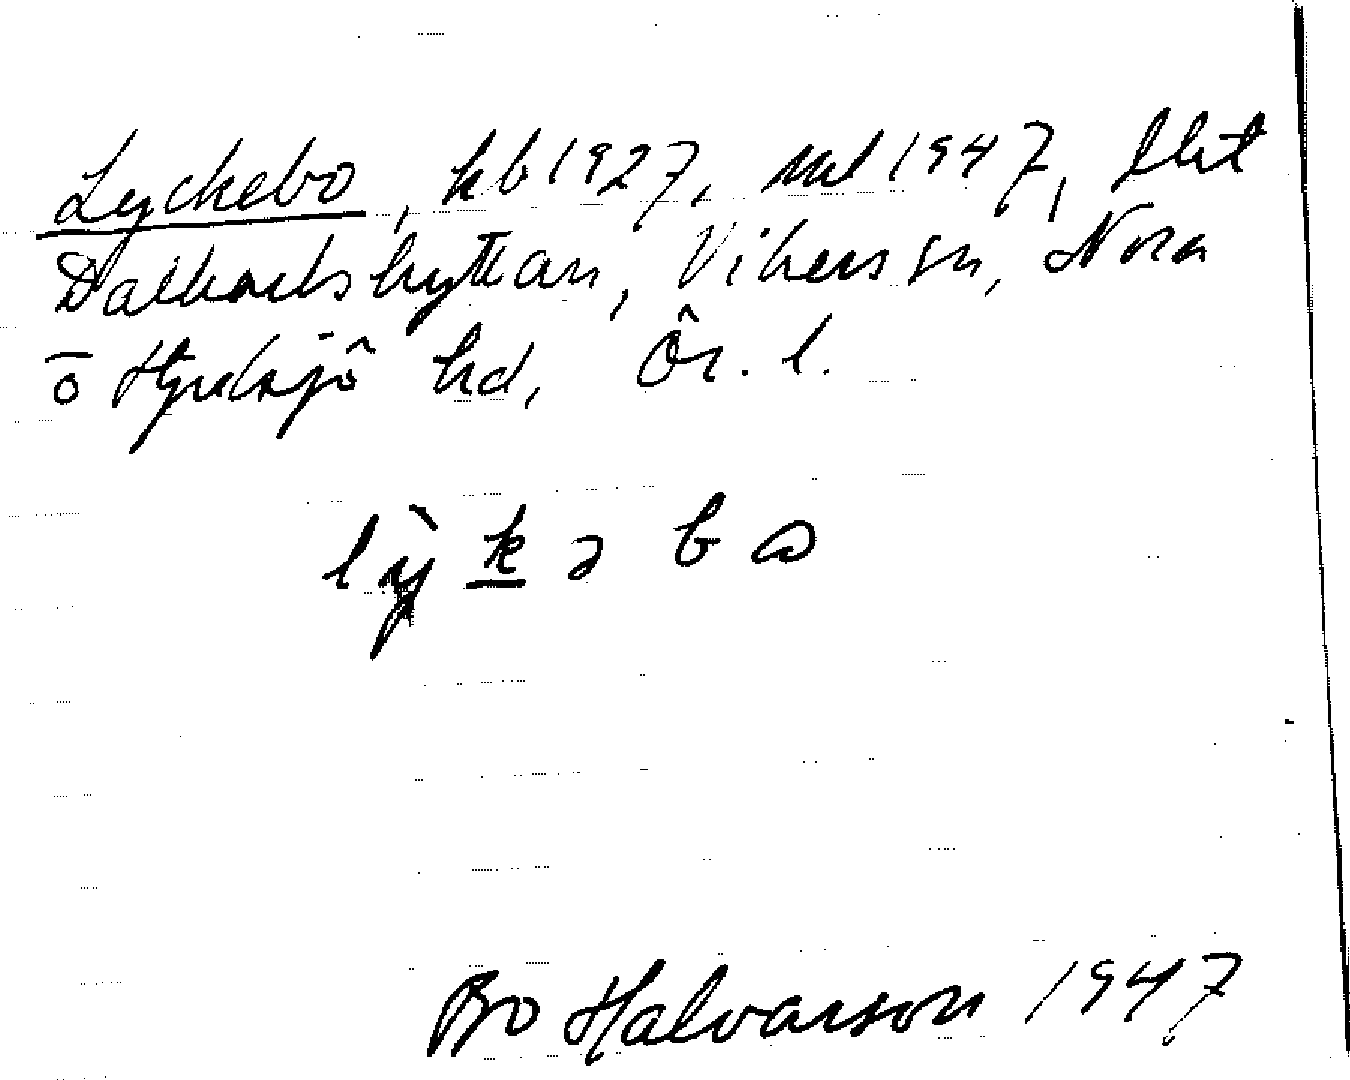 Lyckebo, kb 1927, ml 1947, lht
Dalkarlshyttan, Vikers sn, Nora
o Hjulsjö hd, Ör. l.
lỳkəbɷ
Bo Halvarson 1947